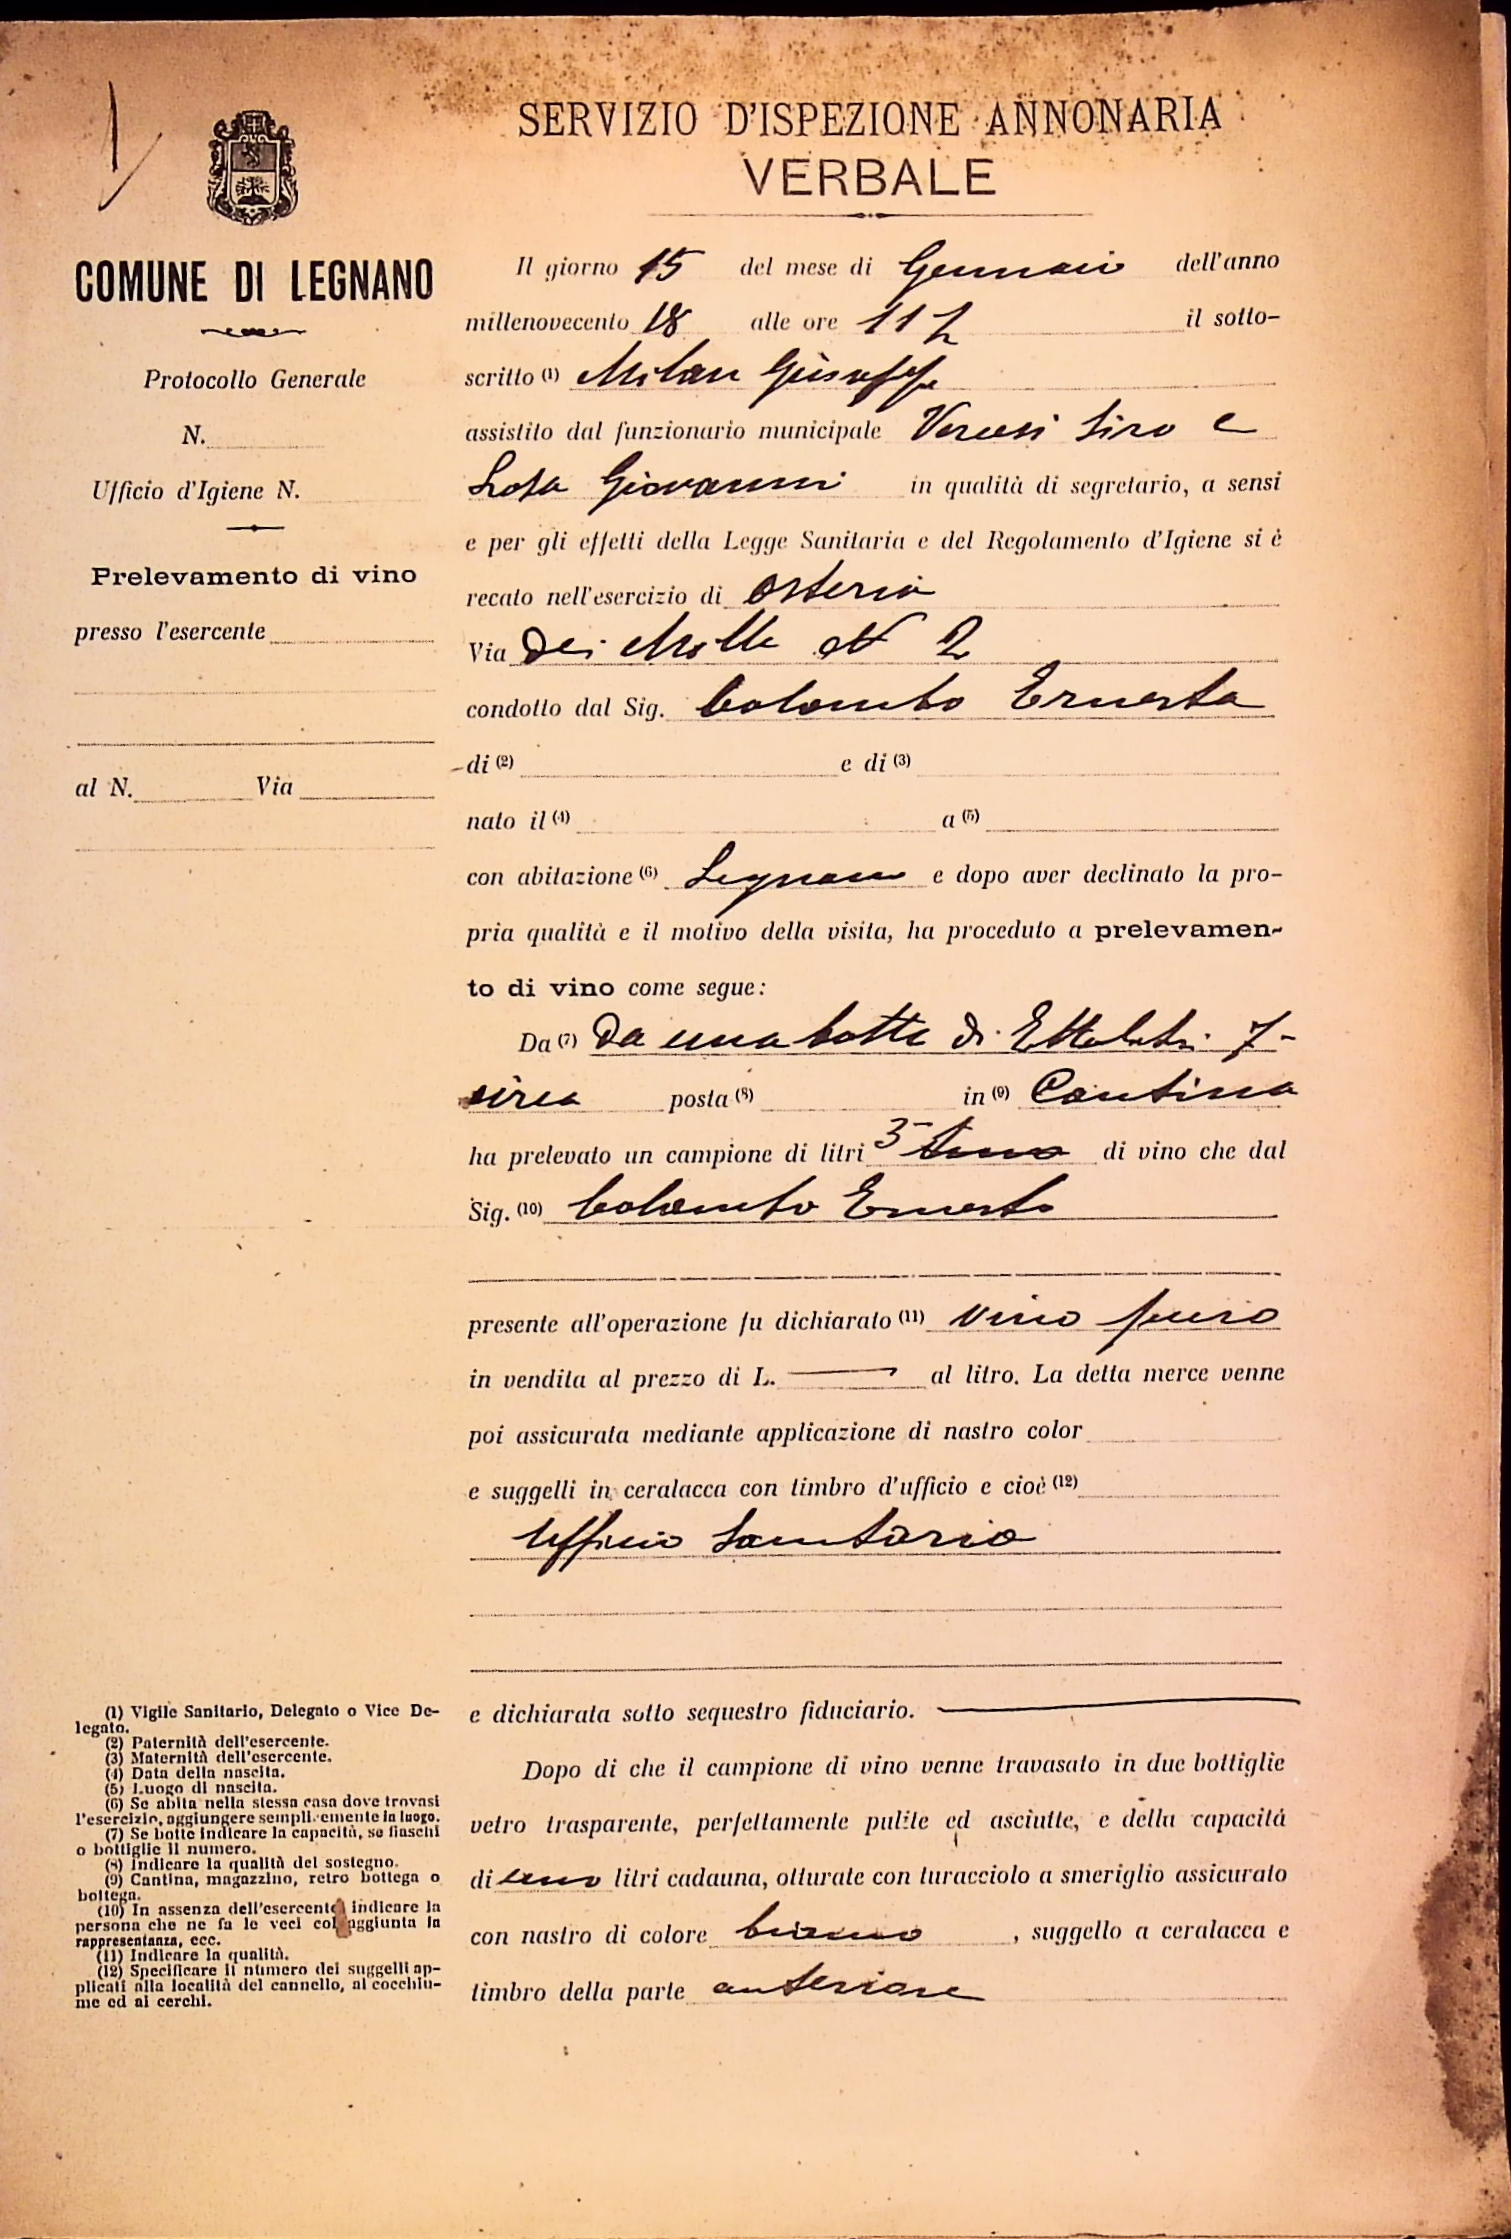 SERVIZIO D'ISPEZIONE ANNONARIA
VERBALE
COMUNE DI LEGNANO
Protocollo Generale
N.
Ufficio d'Igiene N.
Prelevamento di vino
presso l'esercente
al N. Via
Il giorno 15 del mese di Gennaio dell'anno
millenovecento 18 alle ore 11 il sotto-
scritto (1) Milan Giuseppe
assistito dal funzionario municipale Siro e
Giovanni in qualità di segretario, a sensi
e per gli effetti della Legge Sanitaria e del Regolamento d'Igiene si è
recato nell'esercizio di osteria
Via Dei Mille N 2
condotto dal Sig. Colombo Ernesta
di (2) e di (3)
nato il (4) a (5)
con abitazione (6) Legnano e dopo aver declinato la pro-
pria qualità e il motivo della visita, ha proceduto a prelevamen-
to di vino come segue:
Da (7) Da una botte di Ettolitri 7-
circa posta (8) in (9) Cantina
ha prelevato un campione di litri 3 di vino che dal
Sig. (10) Colombo Ernesto
presente all'operazione fu dichiarato (11) vino puro
in vendita al prezzo di L. — al litro. La detta merce venne
poi assicurata mediante applicazione di nastro color
e suggelli in ceralacca con timbro d'ufficio e cioè (12)
Ufficio Sanitario
e dichiarata sotto sequestro fiduciario.
Dopo di che il campione di vino venne travasato in due bottiglie
vetro trasparente, perfettamente pulite ed asciutte, e della capacità
di uno litri cadauna, otturate con turacciolo a smeriglio assicurato
con nastro di colore bianco, suggello a ceralacca e
timbro della parte anteriore
(1) Vigile Sanitario, Delegato o Vice De-
legato.
(2) Paternità dell'esercente.
(3) Maternità dell'esercente.
(4) Data della nascita.
(5) Luogo di nascita.
(6) Se abita nella stessa casa dove trovasi
l'esercizio, aggiungere semplicemente in luogo.
(7) Se botte indicare la capacità, se fiaschi
o bottiglie il numero.
(8) Indicare la qualità del sostegno.
(9) Cantina, magazzino, retro bottega o
bottega.
(10) In assenza dell'esercente indicare la
persona che ne fa le veci coll'aggiunta in
rappresentanza, ecc.
(11) Indicare la qualità.
(12) Specificare il numero dei suggelli ap-
plicati alla località del cannello, al cocchiu-
me ed ai cerchi.